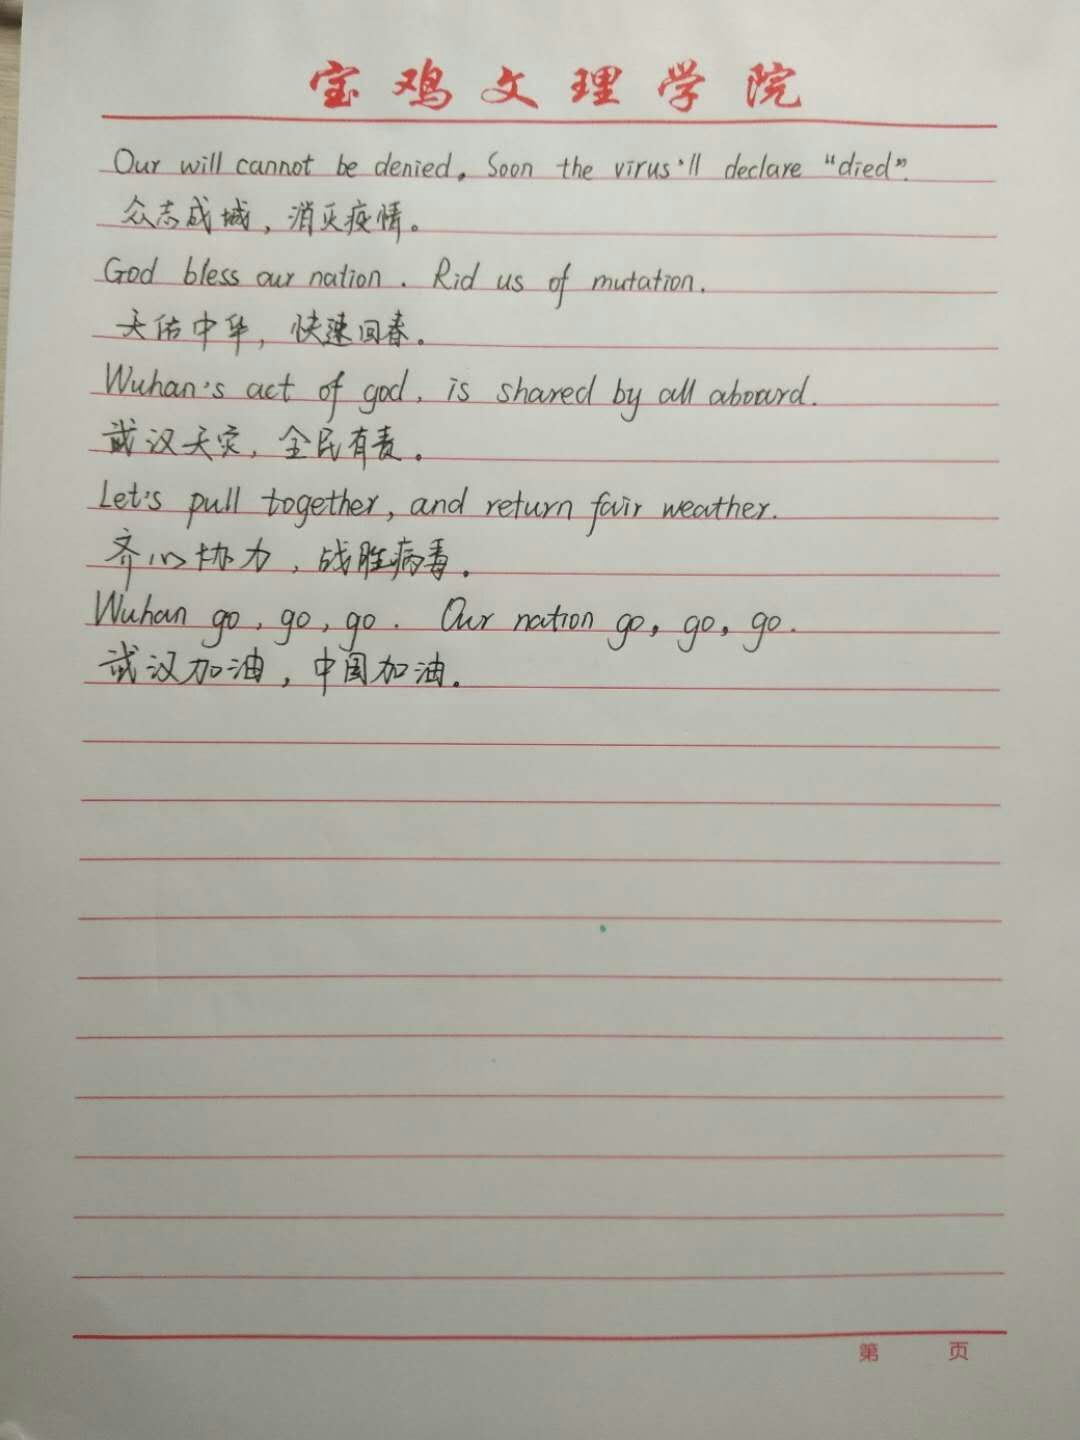 宝鸡文理学院
Our will cannot be denied. Soon the virus'll declare "died".
众志成城，消灭疫情。
God bless our nation. Rid us of mutation.
天佑中华，快速回春。
Wuhan's act of god, is shared by all aboard.
武汉天灾，全民有责。
Let's pull together, and return fair weather.
齐心协力，战胜病毒。
Wuhan go, go, go. Our nation go, go, go.
武汉加油，中国加油。
第 页